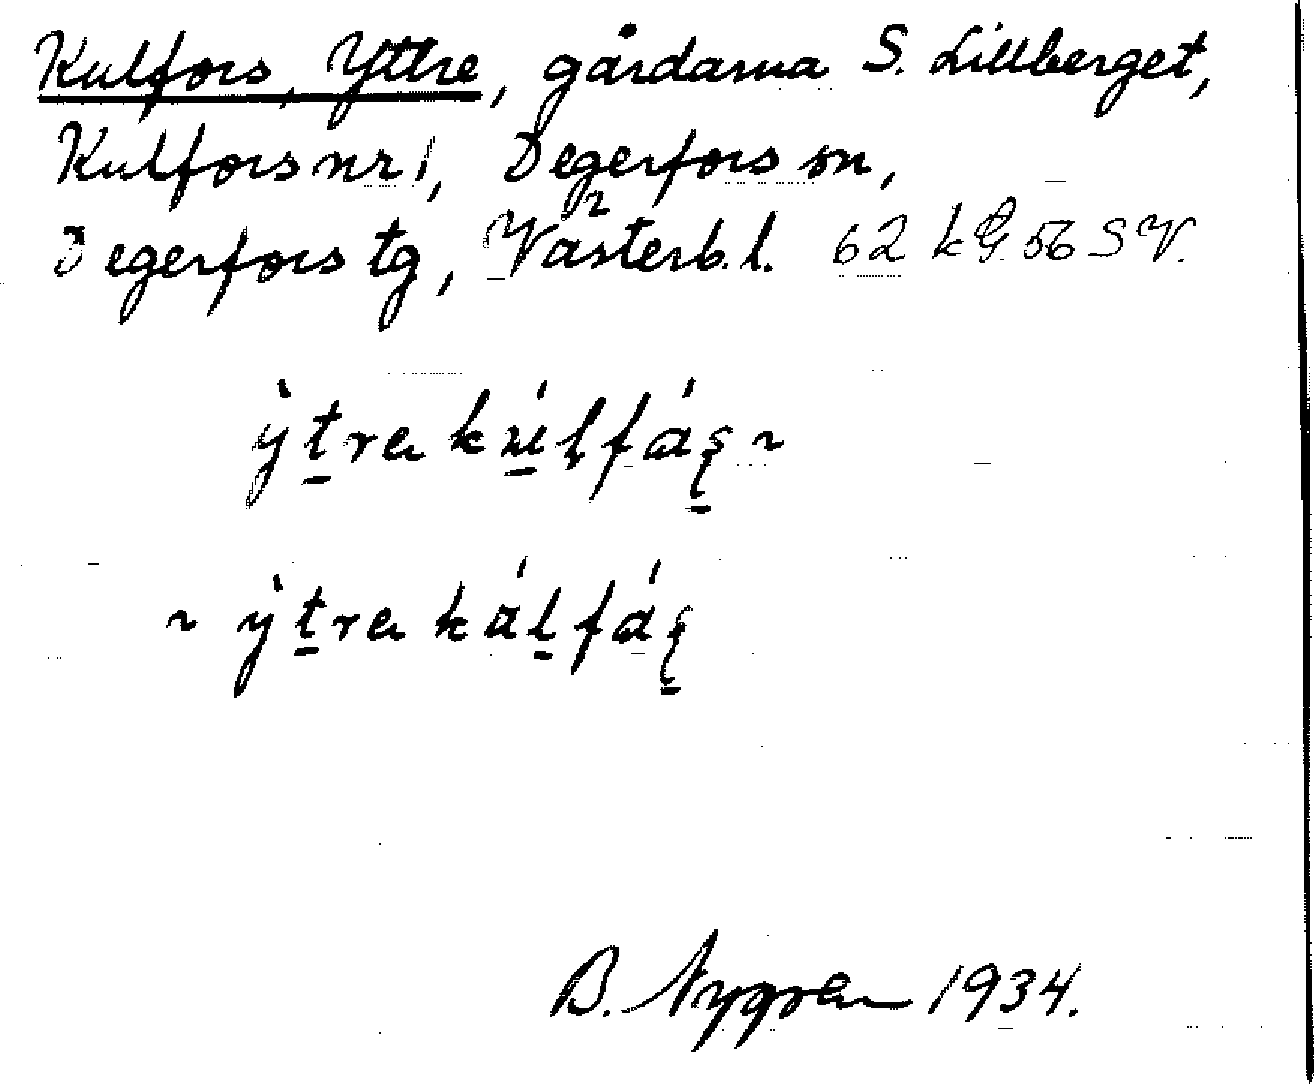 Kulfors, Yttre, gårdarna S. Lillberget,
Kulfors nr 1, Degerfors sn,
Degerfors tg, Västerb. l. 62 k G 56 SV.
ỳt̲re kúlfás ~
~ ỳt̲re kál̲fás
B. Nygren 1934.